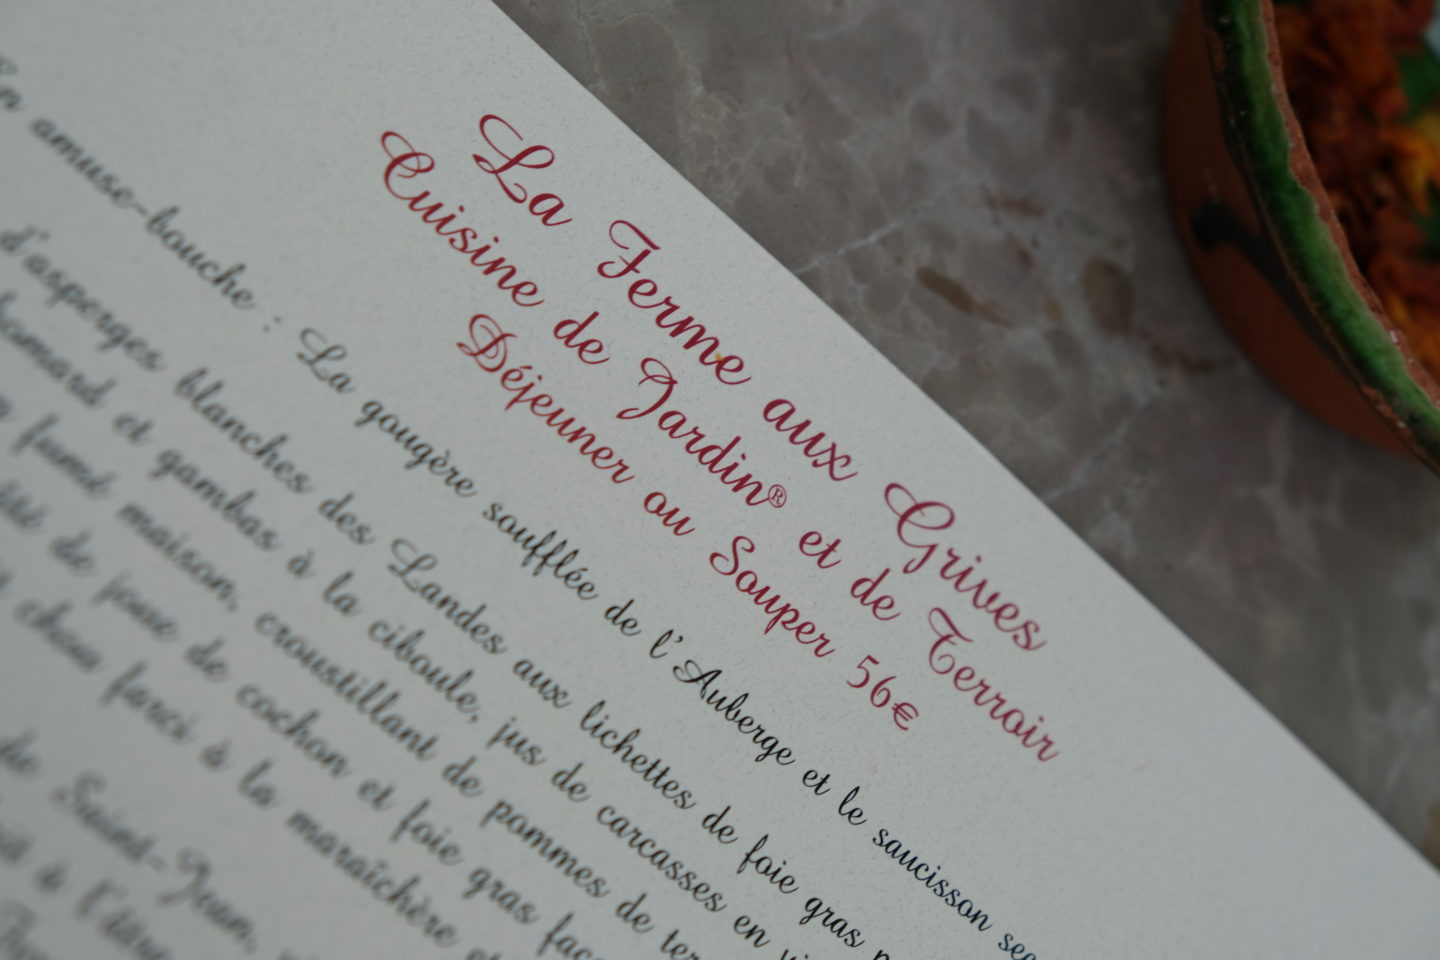 La Ferme aux Grives
Cuisine de Jardin® et de Terroir
Déjeuner ou Souper 56€
En amuse-bouche : La gougère soufflée de l'Auberge et le saucisson sec
d'asperges blanches des Landes aux lichettes de foie gras
homard et gambas à la ciboule, jus de carcasses en
fumé maison, croustillant de pommes de
été de joue de cochon et foie gras
chou farci à la maraîchère et
de Saint-Jean,
à